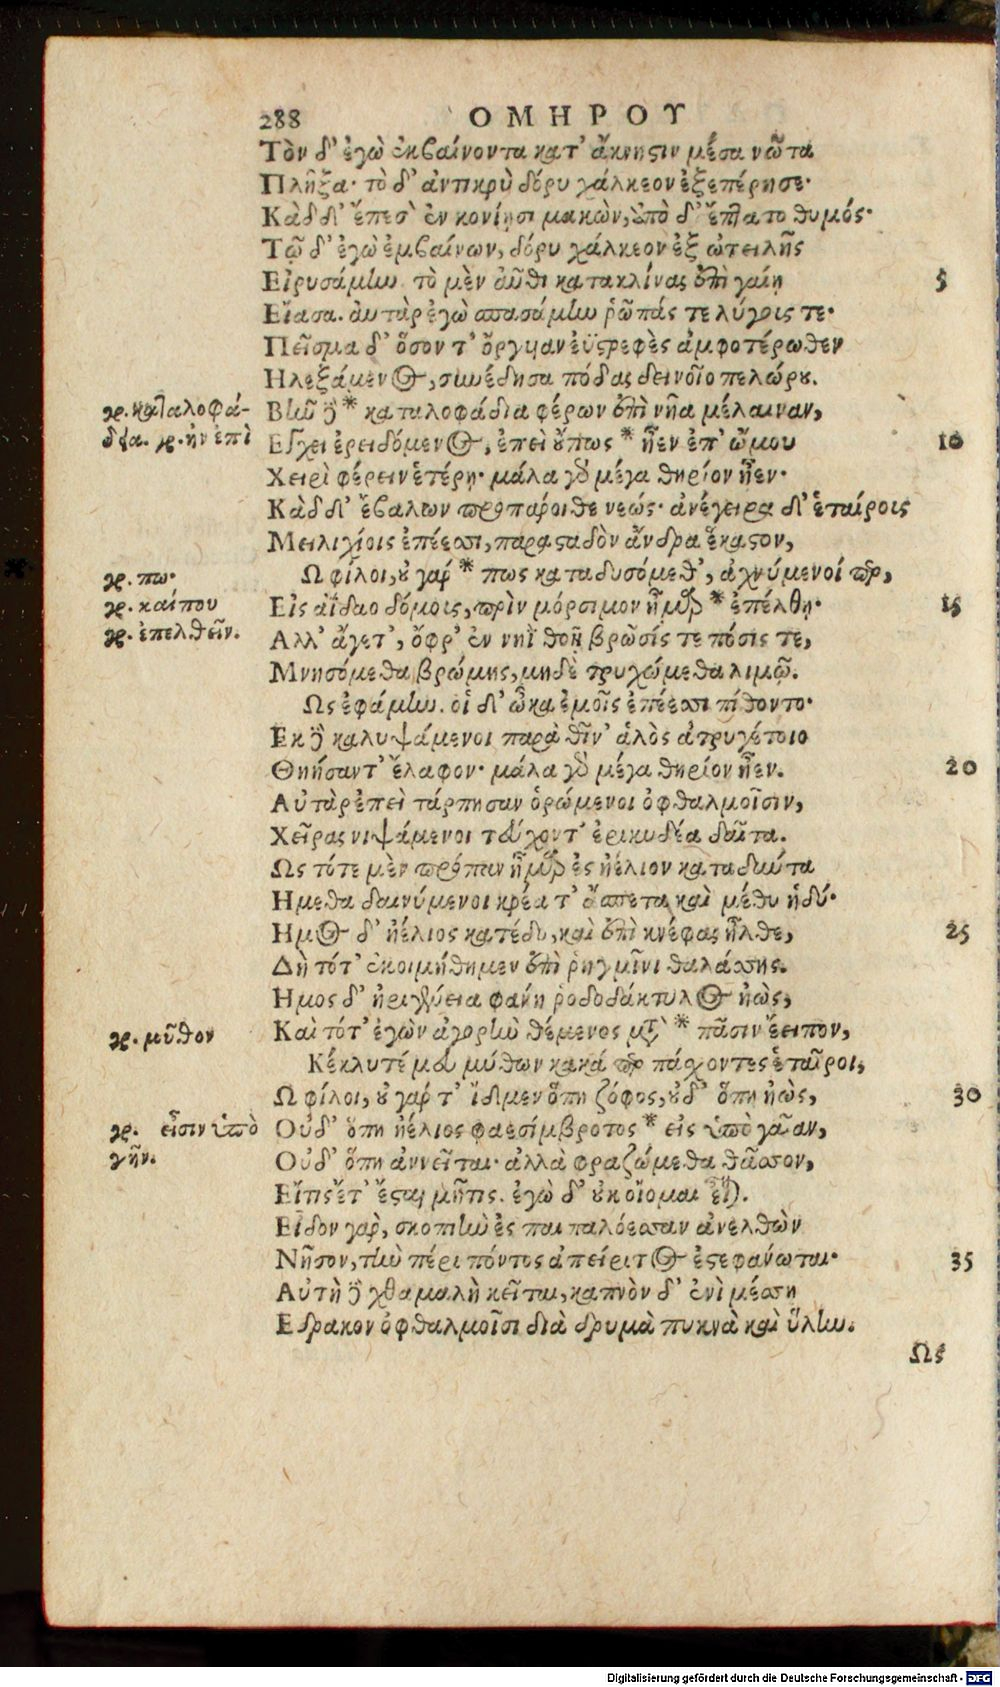 288 ΟΜΗΡΟΥ
Τὸν δ' ἐγὼ ἐκβαίνοντα κατ' ἄκνηςιν μέσα νῶτα
Πλῆξα· τὸ δ' ἀντικρὺ δόρυ χάλκεον ἐξεπέρησε·
Κὰδ δ' ἔπεσ' ἐν κονίῃσι μακὼν, ἀπὸ δ' ἔπτατο θυμός·
Τῷ δ' ἐγὼ ἐμβαίνων, δόρυ χάλκεον ἐξ ὠτειλῆς
Εἰρυσάμην. τὸ μὲν αὖθι κατακλίνας ἐπὶ γαίῃ 5
Εἴασα. αὐτὰρ ἐγὼ σπασάμην ῥῶπάς τε λύγους τε·
Πεῖσμα δ' ὅσον τ' ὄργυιαν ἐϋςρεφὲς ἀμφοτέρωθεν
Πλεξάμενος, συνέδησα πόδας δεινοῖο πελώρου.
γρ. καταλοφά- Βῆν δὲ * καταλοφάδια φέρων ἐπὶ νῆα μέλαιναν,
δια. γρ. ἦν ἐπὶ Εγχει ἐρειδόμενος, ἐπεὶ οὔπως * ἦεν ἐπ' ὤμου 10
Χειρὶ φέρειν ἑτέρῃ· μάλα γὰρ μέγα θηρίον ἦεν·
Κὰδ δ' ἔβαλων προπάροιθε νεώς· ἀνέγειρα δ' ἑταίρους
Μειλιχίοις ἐπέεσσι, παραςαδὸν ἄνδρα ἕκαςον,
γρ. πω· Ω φίλοι, οὐ γάρ * πως καταδυσόμεθ', ἀχνύμενοί περ,
γρ. καίπου Εἰς ἀΐδαο δόμοις, πρὶν μόρσιμον ἦμαρ * ἐπέλθῃ· 15
γρ. ἐπελθεῖν. Αλλ' ἄγετ', ὄφρ' ἐν νηῒ θοῇ βρῶσίς τε πόσις τε,
Μνησόμεθα βρώμης, μηδὲ τρυχώμεθα λιμῷ.
Ως ἐφάμην. οἱ δ' ὦκα ἐμοῖς ἐπέεσσι πίθοντο·
Εκ δὲ καλυψάμενοι παρὰ θῖν' ἁλὸς ἀτρυγέτοιο
Θηήσαντ' ἔλαφον· μάλα γὰρ μέγα θηρίον ἦεν. 20
Αὐτὰρ ἐπεὶ τάρπησαν ὁρώμενοι ὀφθαλμοῖσιν,
Χεῖρας νιψάμενοι τεύχοντ' ἐρικυδέα δαῖτα.
Ως τότε μὲν πρόπαν ἦμαρ ἐς ἠέλιον καταδύντα
Ημεθα δαινύμενοι κρέα τ' ἄσπετα καὶ μέθυ ἡδύ·
Ημος δ' ἠέλιος κατέδυ, καὶ ἐπὶ κνέφας ἦλθε, 25
Δὴ τότ' ἐκοιμήθημεν ἐπὶ ῥηγμῖνι θαλάσσης.
Ημος δ' ἠριγένεια φάνη ῥοδοδάκτυλος ἠὼς,
γρ. μῦθον Καὶ τότ' ἐγὼν ἀγορὴν θέμενος μετὰ * πᾶσιν ἔειπον,
Κέκλυτέ μευ μύθων κακά περ πάχοντες ἑταῖροι,
Ω φίλοι, οὐ γάρ τ' ἴδμεν ὅπη ζόφος, οὐδ' ὅπη ἠὼς, 30
γρ. εἶσιν ὑπὸ Οὐδ' ὅπη ἠέλιος φαεσίμβροτος * εἰς ὑπὸ γαῖαν,
γῆν. Οὐδ' ὅπη ἀννεῖται· ἀλλὰ φραζώμεθα θᾶσσον,
Εἴτις ἔτ' ἔςαι μῆτις. ἐγὼ δ' οὐκ οἴομαι εἶναι.
Εἶδον γὰρ, σκοπιὴν ἐς παιπαλόεσσαν ἀνελθὼν
Νῆσον, τὴν πέρι πόντος ἀπείριτος ἐςεφάνωται· 35
Αὐτὴ δὲ χθαμαλὴ κεῖται, καπνὸν δ' ἐνὶ μέσσῃ
Εδρακον ὀφθαλμοῖσι διὰ δρυμὰ πυκνὰ καὶ ὕλην.
Ως
Digitalisierung gefördert durch die Deutsche Forschungsgemeinschaft - DFG